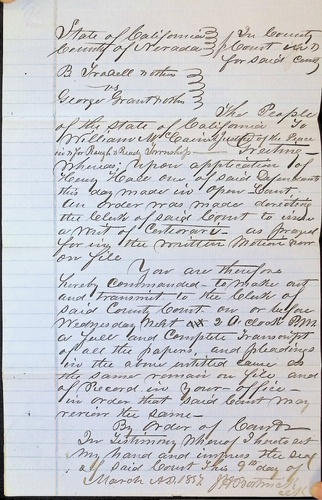 State of California } In County
County of Nevada } Court in &
for said County
B Tradell & others
vs
George Grant & others
The People
of the State of California To
William McCain Justice of the Peace
in & for Rough & Ready Township Greeting
Whereas upon application of
Henry Hale one of said Defendants
this day made in Open Court.
An order was made directing
the Clerk of said Court to issue
a Writ of Certiorari as prayed
for in the written Motion now
on file
You are therefore
hereby commanded to make out
and transmit to the Clerk of
said County Court on or before
Wednesday Next at 2 O. clock P.M.
a full and Complete Transcript
of all the papers, and pleadings
in the above entitled cause as
the same remain on file and
of Record in your office
in order that said Court may
review the same
By Order of Court
In Testimony Whereof I hereto set
my hand and impress the seal
of said Court This 9th day of
March A.D. 1857